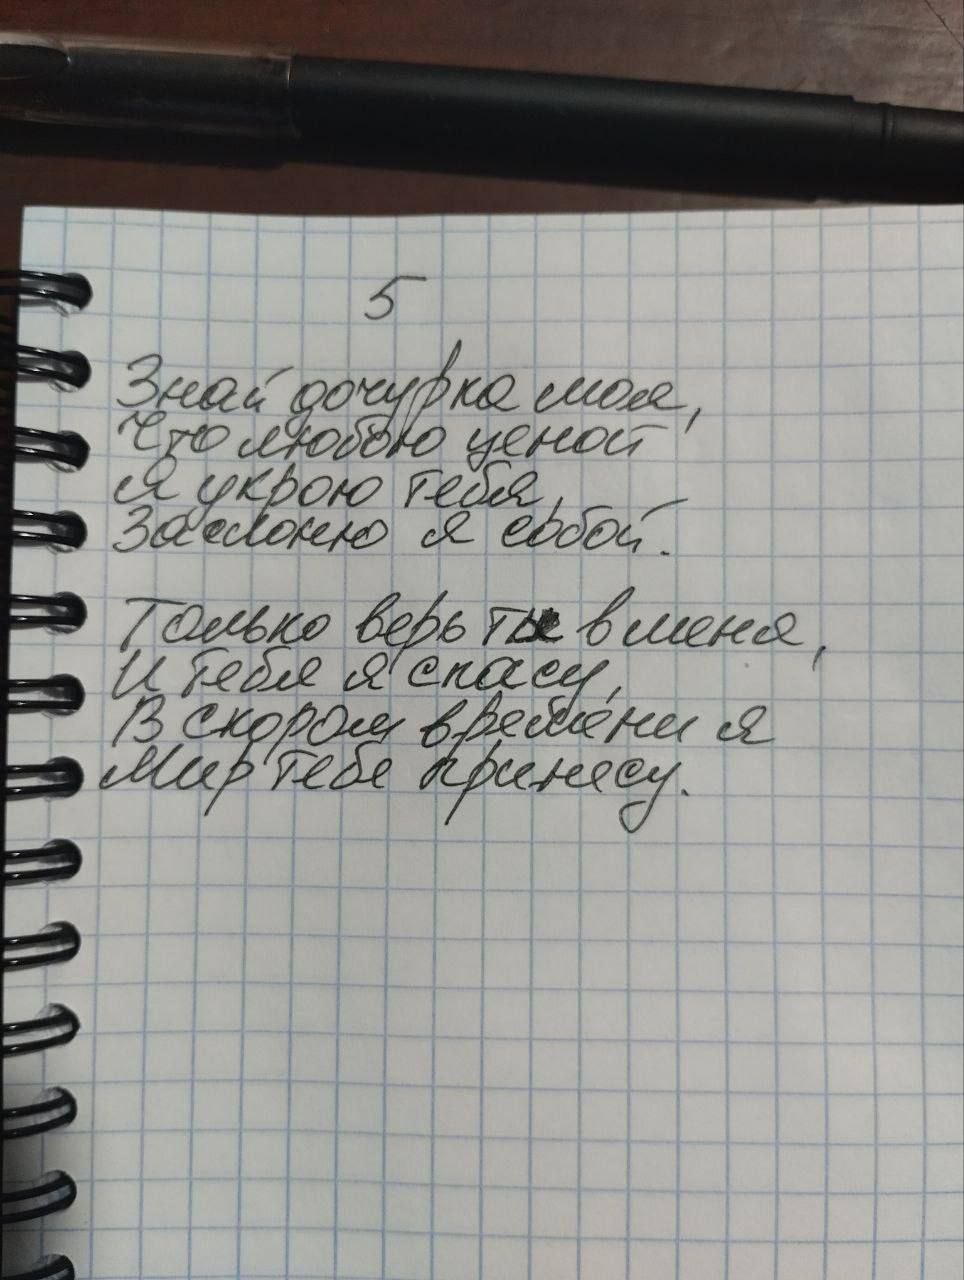 5
Знай дочурка моя,
Что любою ценой
Я укрою тебя,
Заслоню я собой.
Только верь ты в меня,
И тебя я спасу,
В скором времени я
Мир тебе принесу.